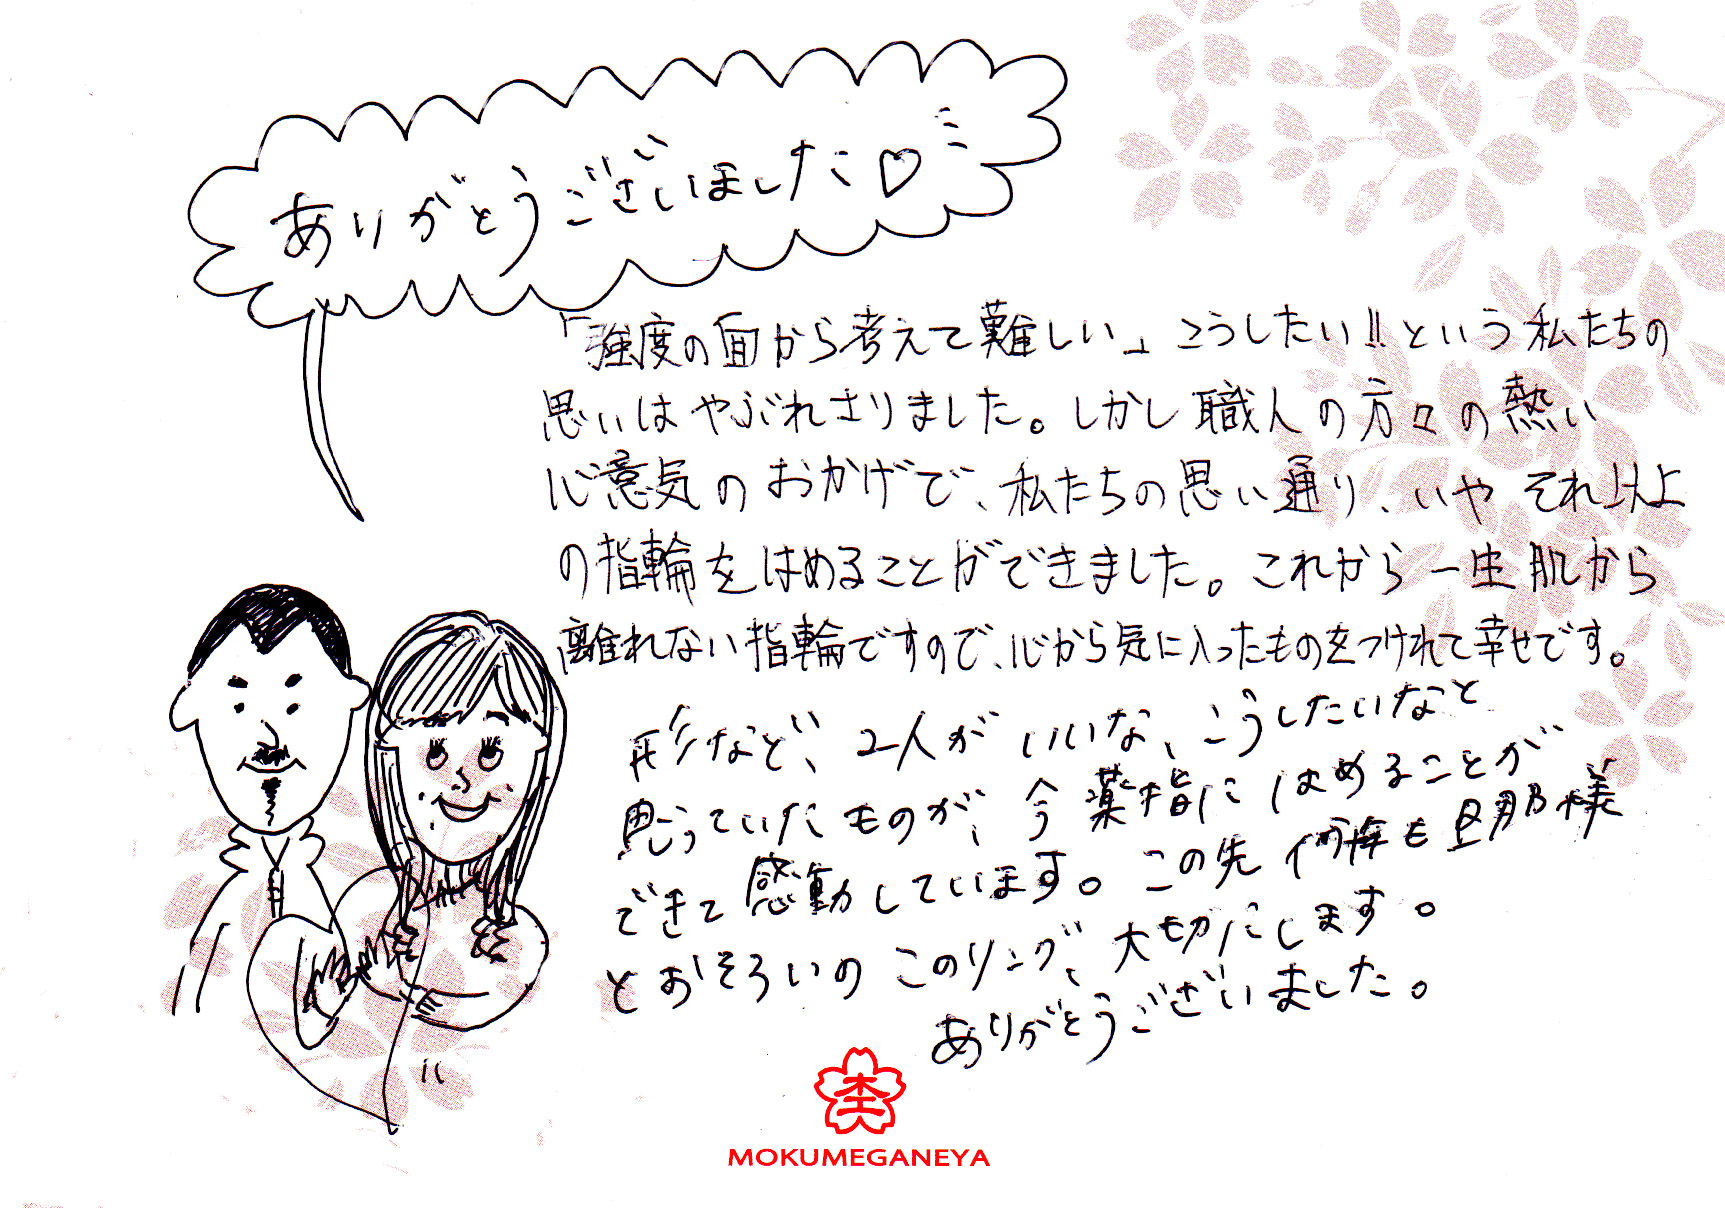 ありがとうございました♡
「強度の面から考えて難しい」こうしたい!!という私たちの
思いはやぶれさりました。しかし職人の方々の熱い
心意気のおかげで、私たちの思い通り、いやそれ以上
の指輪をはめることができました。これから一生肌から
離れない指輪ですので、心から気に入ったものをつけれて幸せです。
形など、2人がいいな、こうしたいなと
思っていたものが、今薬指にはめることが
できて感動しています。この先何年も旦那様
とおそろいのこのリング、大切にします。
ありがとうございました。
杢
MOKUMEGANEYA